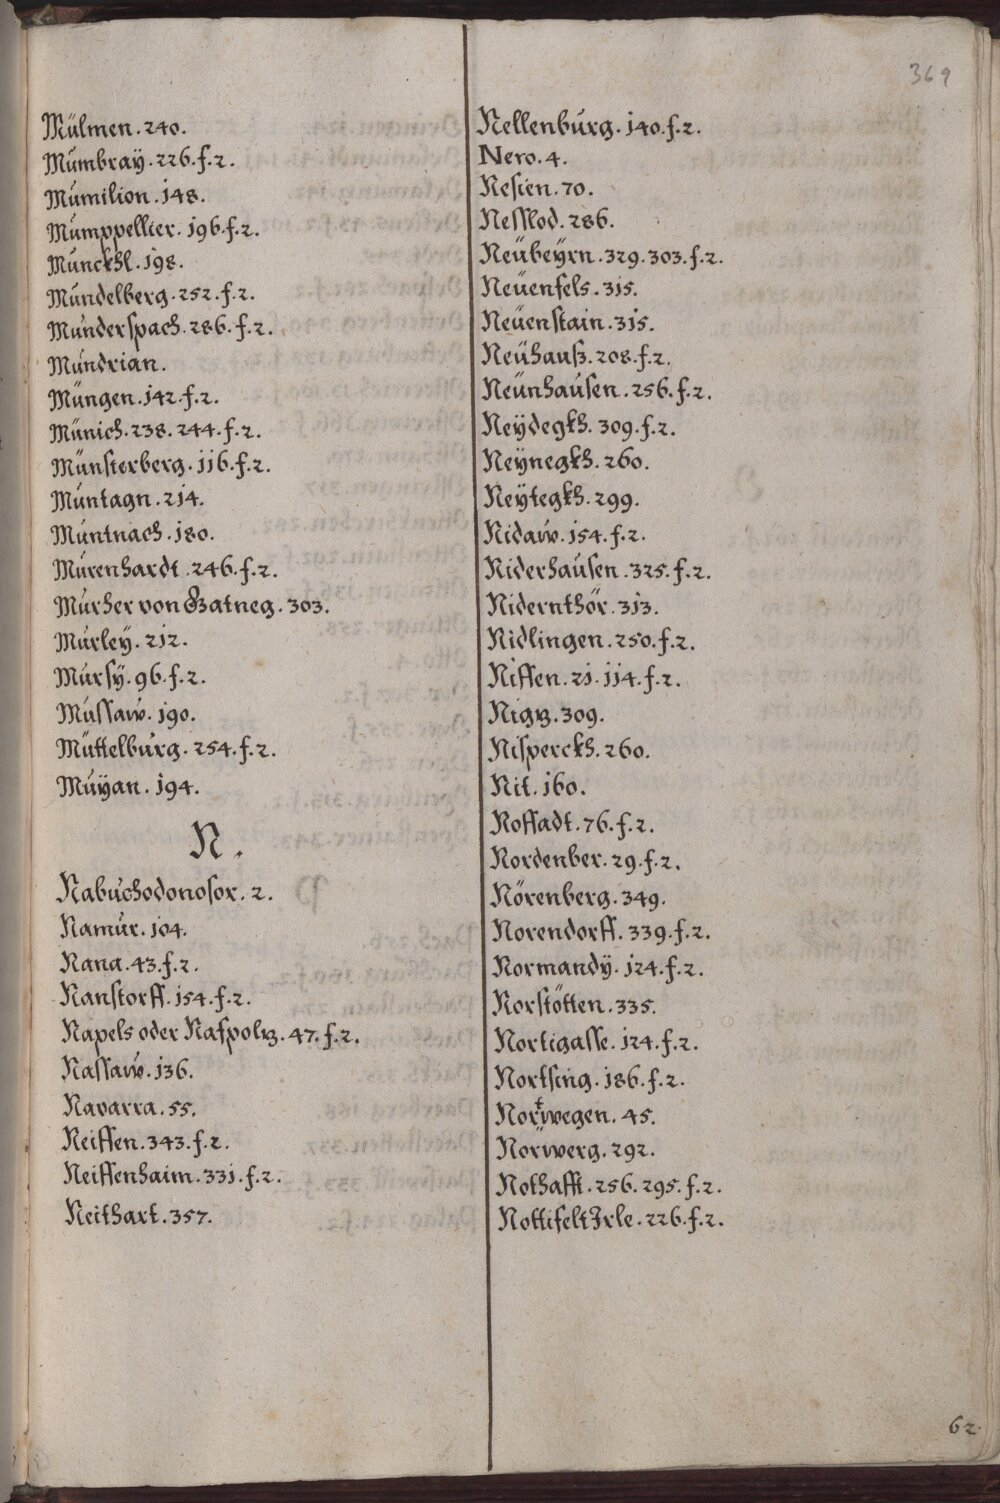 369
Mülmen. 240.
Mümbraÿ. 226. f. 2.
Mümilion. 148.
Mümppellier. 196. f. 2.
Münckhl. 198.
Mündelberg. 252. f. 2.
Münderspach. 286. f. 2.
Mündrian.
Müngen. 142. f. 2.
Münich. 238. 244. f. 2.
Münsterberg. 116. f. 2.
Müntagn. 214.
Müntnach. 180.
Mürenhardt. 246. f. 2.
Mürher von Gatneg. 303.
Mürleÿ. 212.
Mürsÿ. 96. f. 2.
Müssaw. 190.
Müttelbürg. 254. f. 2.
Müÿan. 194.
N.
Nabuchodonosor. 2.
Namür. 104.
Nana. 43. f. 2.
Nanstorff. 154. f. 2.
Napels oder Naspolis. 47. f. 2.
Nassaw. 136.
Navarra. 55.
Neissen. 343. f. 2.
Neiffenhaim. 331. f. 2.
Neithart. 357.
Nellenbürg. 140. f. 2.
Nero. 4.
Nesien. 70.
Nesslod. 286.
Neübeÿrn. 329. 303. f. 2.
Neüenfels. 315.
Neüenstain. 315.
Neühauß. 208. f. 2.
Neünhaüsen. 256. f. 2.
Neÿdegkh. 309. f. 2.
Neÿnegkh. 260.
Neÿtegkh. 299.
Nidaw. 154. f. 2.
Niderhaüsen. 325. f. 2.
Nidernthör. 313.
Nidlingen. 250. f. 2.
Niffen. 21. 114. f. 2.
309.
Nisperckh. 260.
Nit. 160.
Noffadt. 76. f. 2.
Nordenber. 29. f. 2.
Nörenberg. 349.
Norendorff. 339. f. 2.
Normandÿ. 124. f. 2.
Norstötten. 335.
Nortigasse. 124. f. 2.
Nortsing. 186. f. 2.
Nortwegen. 45.
Norwerg. 292.
Nothafft. 256. 295. f. 2.
Nottifelt Irle. 226. f. 2.
62